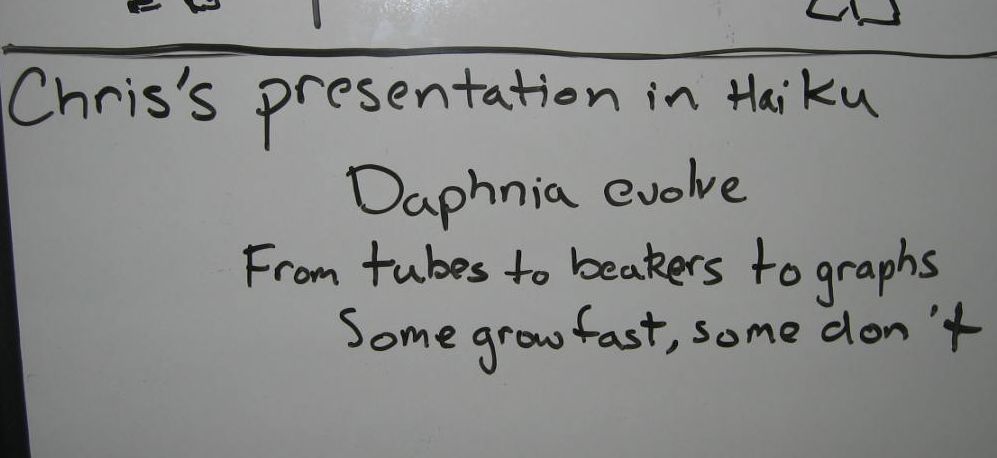 Chris's presentation in Haiku
Daphnia evolve
From tubes to beakers to graphs
Some grow fast, some don't